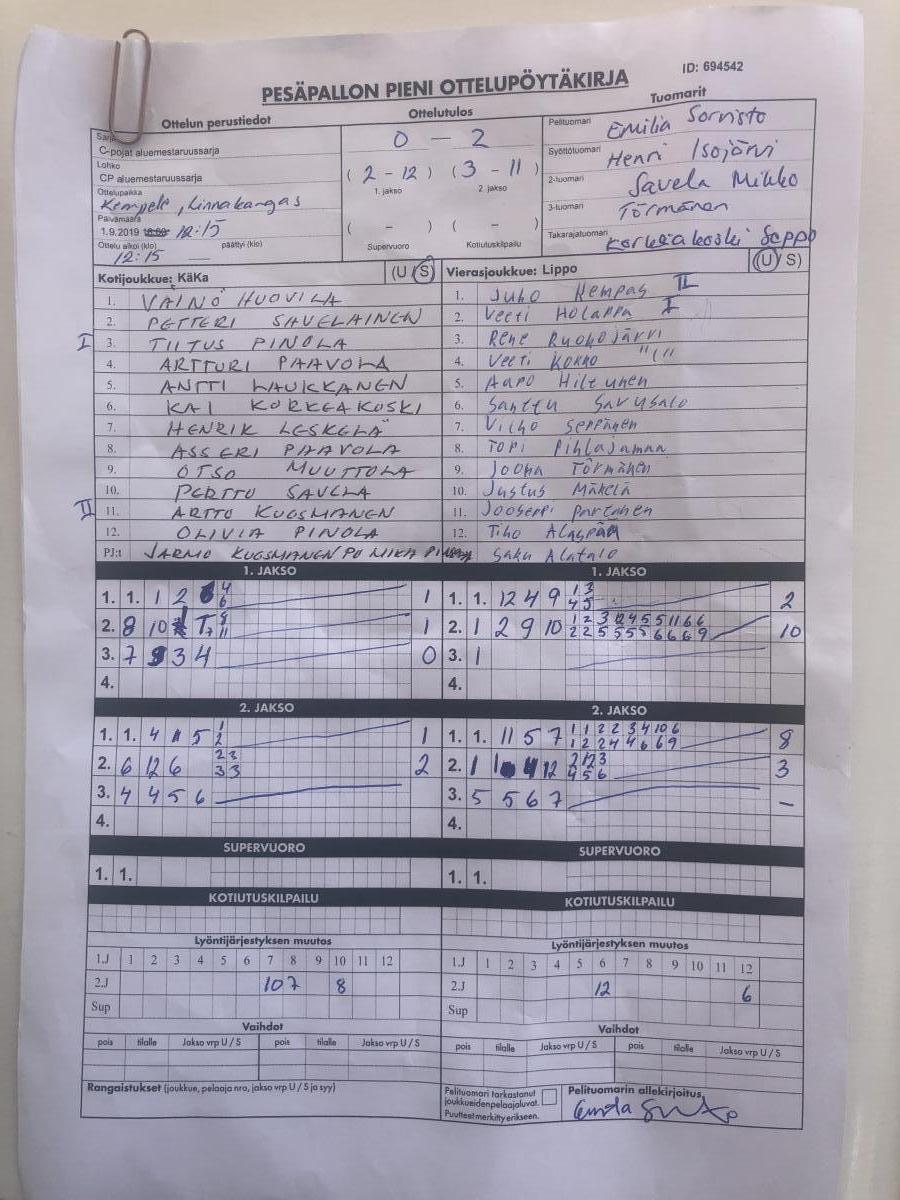 ID: 694542
PESÄPALLON PIENI OTTELUPÖYTÄKIRJA
Ottelun perustiedot
Sarja
C-pojat aluemestaruussarja
Lohko
CP aluemestaruussarja
Ottelupaikka
Kempele, Linnakangas
Päivämäärä
1.9.2019 12:15
Ottelu alkoi (klo) päättyi (klo)
12:15
Ottelutulos
0 - 2
(2 - 12) (3 - 11)
1. jakso 2. jakso
( - ) ( - )
Supervuoro Kotiutuskilpailu
Tuomarit
Pelituomari Emilia Sorvisto
Syöttötuomari Henri Isojärvi
2-tuomari Savela Mikko
3-tuomari Törmänen
Takarajatuomari Korkeakoski Seppo
Kotijoukkue: KäKa (U / S)
1. VÄINÖ HUOVILA
2. PETTERI SAVELAINEN
I 3. TIITUS PINOLA
4. ARTTURI PAAVOLA
5. ANTTI LAUKKANEN
6. KAI KORKEAKOSKI
7. HENRIK LESKELÄ
8. ASSERI PAAVOLA
9. OTSO MUUTTOLA
10. PERTTU SAVELA
II 11. ARTTO KUOSMANEN
12. OLIVIA PINOLA
PJ:t JARMO KUOSMANEN PO MIKA
Vierasjoukkue: Lippo (U / S)
1. Juho Kempas II
2. Veeti Holappa I
3. Rene Ruohojärvi
4. Veeti Kokko
5. Aapo Hiltunen
6. Santtu Savusalo
7. Vilho Seppänen
8. Topi Pihlajamaa
9. Joona Törmänen
10. Justus Mäkelä
11. Jooseppi Partanen
12. Tino Alaspää
Saku Alatalo
1. JAKSO
1. 1. 1 2 4 6 1
2. 8 10 1
3. 7 3 4 0
4.
1. JAKSO
1. 1. 12 4 9 1 3 4 5 2
2. 1 2 9 10 1 2 3 12 4 5 5 11 6 6 10
2 2 5 5 5 5 6 6 6 9
3. 1
4.
2. JAKSO
1. 1. 4 5 1 2 1
2. 6 12 6 2 3 3 3 2
3. 4 4 5 6
4.
2. JAKSO
1. 1. 11 5 7 1 1 2 2 3 4 10 6 8
1 2 2 4 4 6 6 9
2. 1 1 4 12 2 12 3 4 5 6 3
3. 5 5 6 7 -
4.
SUPERVUORO
1. 1.
SUPERVUORO
1. 1.
KOTIUTUSKILPAILU
KOTIUTUSKILPAILU
Lyöntijärjestyksen muutos
1.J 1 2 3 4 5 6 7 8 9 10 11 12
2.J 10 7 8
Sup
Lyöntijärjestyksen muutos
1.J 1 2 3 4 5 6 7 8 9 10 11 12
2.J 12 6
Sup
Vaihdot
pois tilalle Jakso vrp U / S pois tilalle Jakso vrp U / S
Vaihdot
pois tilalle Jakso vrp U / S pois tilalle Jakso vrp U / S
Rangaistukset (joukkue, pelaaja nro, jakso vrp U / S ja syy)
Pelituomari tarkastanut
joukkueidenpelaajaluvat.
Puutteetmerkittyerikseen.
Pelituomarin allekirjoitus